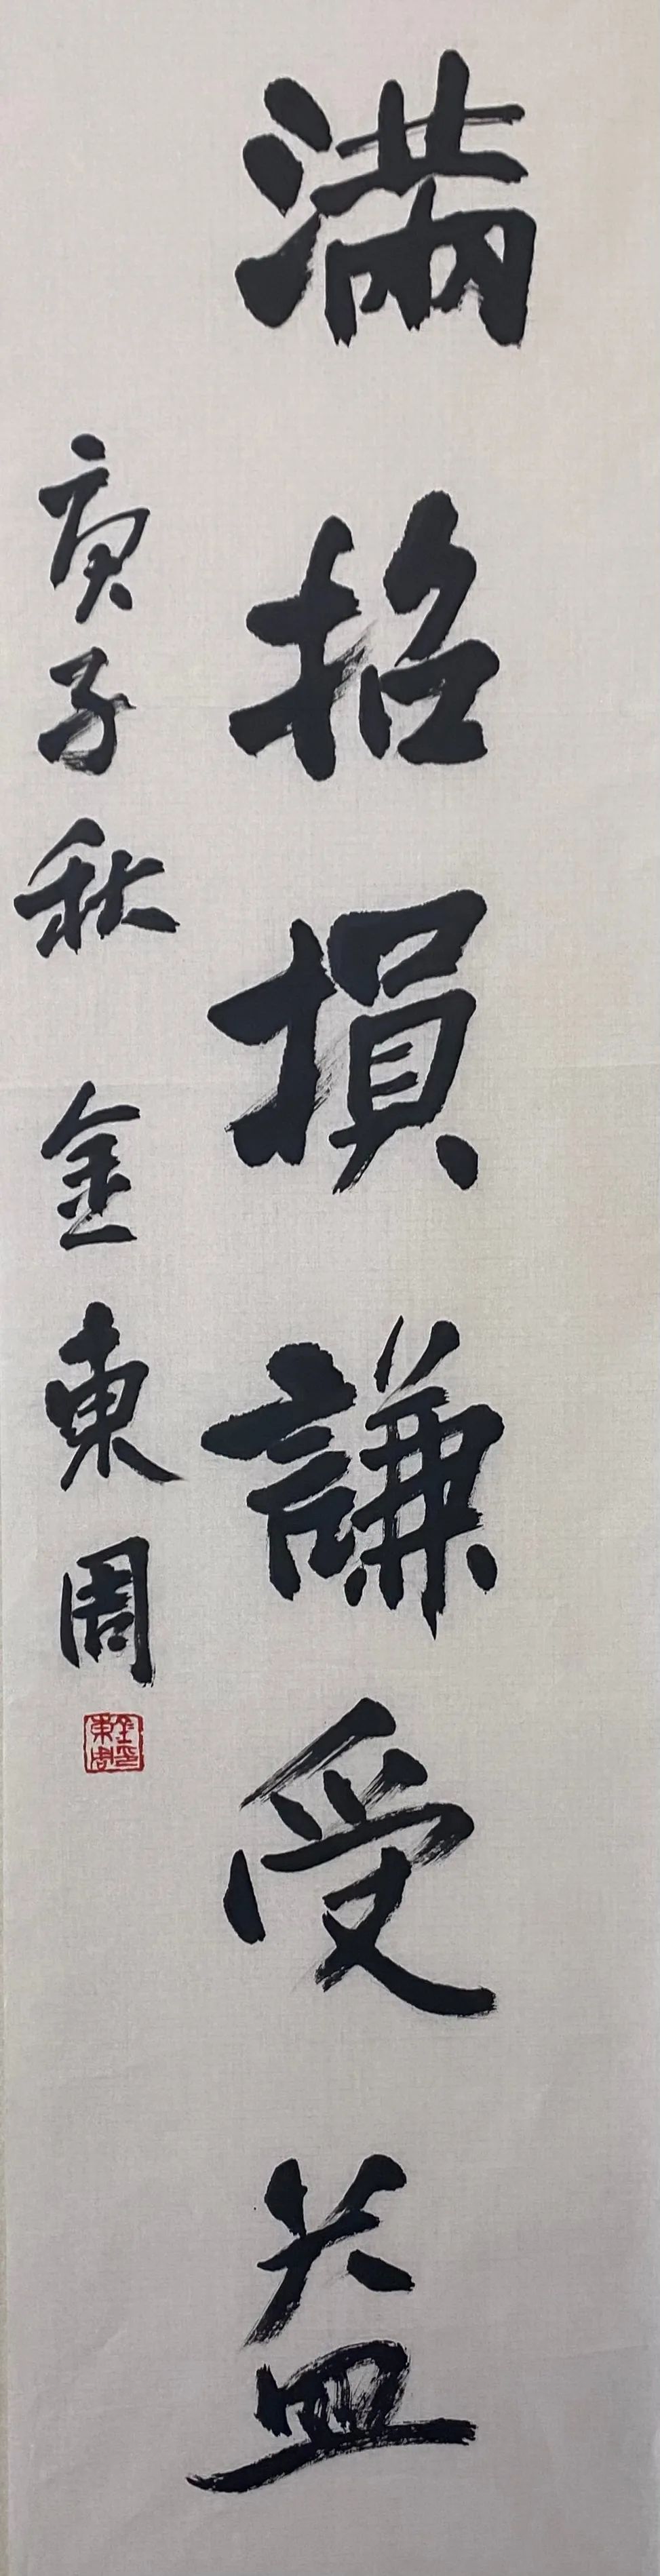 滿招損謙受益
庚子秋 金東周
金東周印